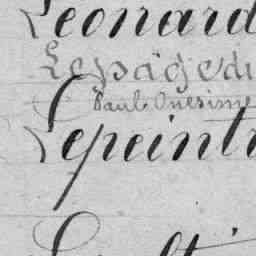 Leonard
Lepage du
Paul Onesime
Lepeint